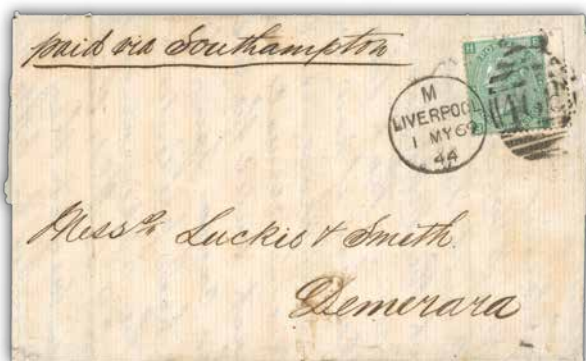 paid via Southampton
M
LIVERPOOL
1 MY 69
44
Messrs Luckie & Smith
Demerara